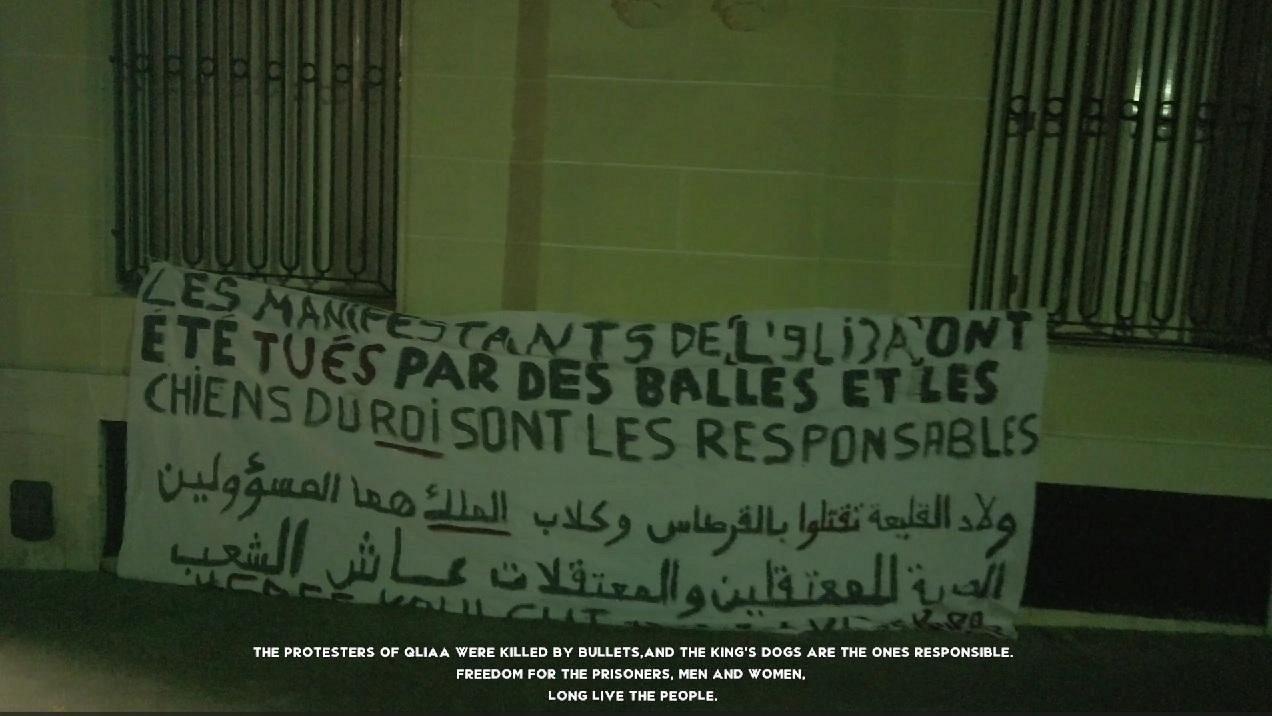 LES MANIFESTANTS DE L'9LI3A ONT
ÉTÉ TUÉS PAR DES BALLES ET LES
CHIENS DU ROI SONT LES RESPONSABLES
ولاد القليعة تقتلوا بالقرطاس وكلاب الملك هما المسؤولين
الحرية للمعتقلين والمعتقلات عاش الشعب
THE PROTESTERS OF QLIAA WERE KILLED BY BULLETS,AND THE KING'S DOGS ARE THE ONES RESPONSIBLE.
FREEDOM FOR THE PRISONERS, MEN AND WOMEN,
LONG LIVE THE PEOPLE.